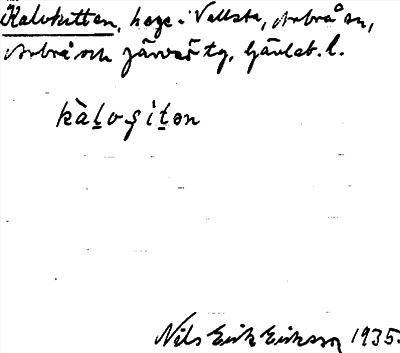 Kalvkitten, hage i Vallsta, Arbrå sn,
Arbrå och Järvsö tg, Gävleb. l.
kàḷvʂiṯən
Nils Erik Eriksson 1935.